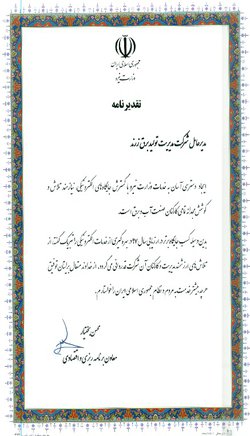 جمهوری اسلامی ایران
وزارت نیرو
تقدیرنامه
مدیرعامل شرکت مدیریت تولید برق زرند
ایجاد دسترسی آسان به خدمات وزارت نیرو با گسترش جایگاه‌های الکترونیکی، نیازمند تلاش و
کوشش مجدانه تمامی کارکنان صنعت آب و برق است.
بدین وسیله کسب جایگاه برتر در ارزیابی سال ۱۳۹۲ در بهره‌گیری از خدمات الکترونیکی را تبریک گفته، از
تلاش‌های ارزشمند مدیریت و کارکنان آن شرکت قدردانی می‌گردد، از خداوند متعال برایتان توفیق
هرچه بیشتر خدمت به مردم و نظام جمهوری اسلامی ایران را خواستارم.
محسن بختیار
معاون برنامه ریزی و اقتصادی